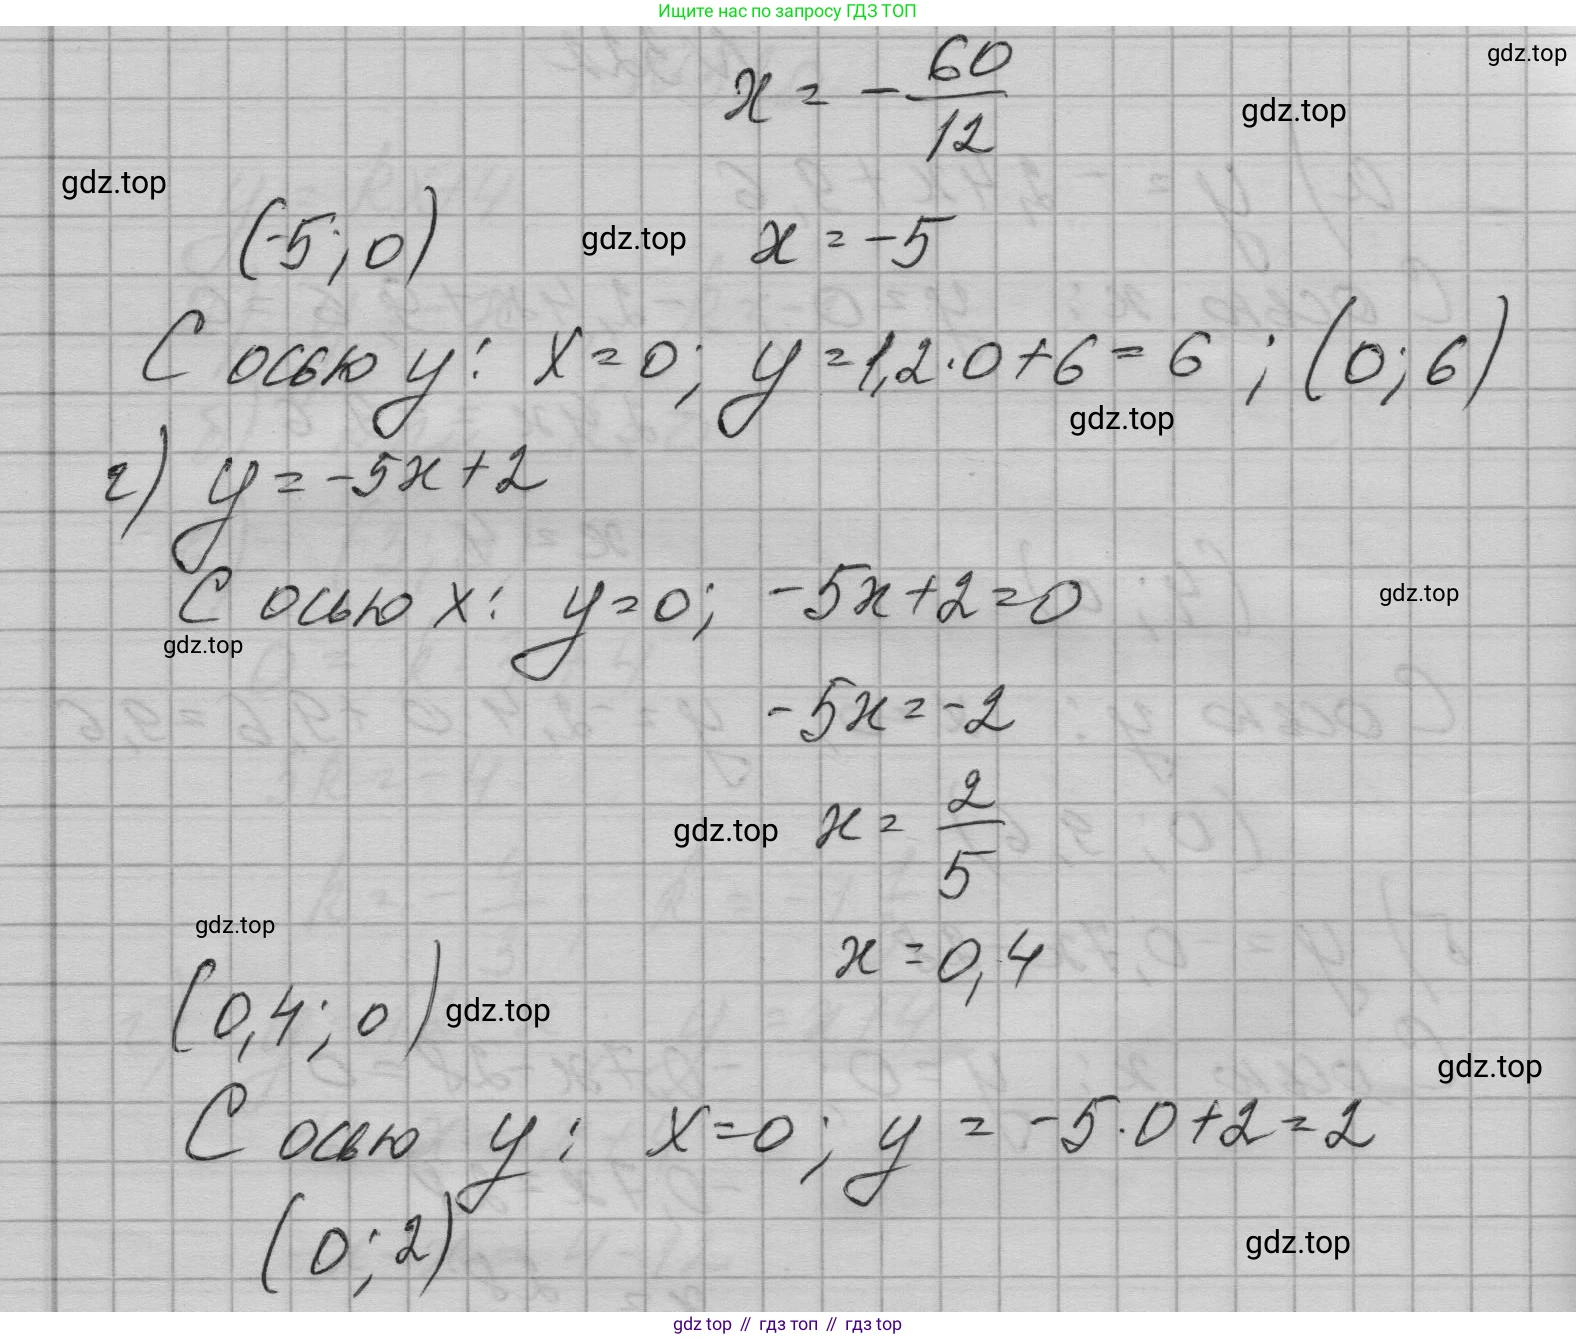 Ищите нас по запросу ГДЗ ТОП
x = -60/12
gdz.top
gdz.top
gdz.top
(-5; 0)
gdz.top
x = -5
С осью y: x=0; y=1,2·0+6=6; (0; 6)
gdz.top
г) y=-5x+2
С осью x: y=0; -5x+2=0
gdz.top
gdz.top
-5x=-2
gdz.top
x= 2/5
gdz.top
x=0,4
(0,4; 0)
gdz.top
gdz.top
С осью y: x=0; y=-5·0+2=2
(0; 2)
gdz.top
gdz top // гдз топ // гдз top